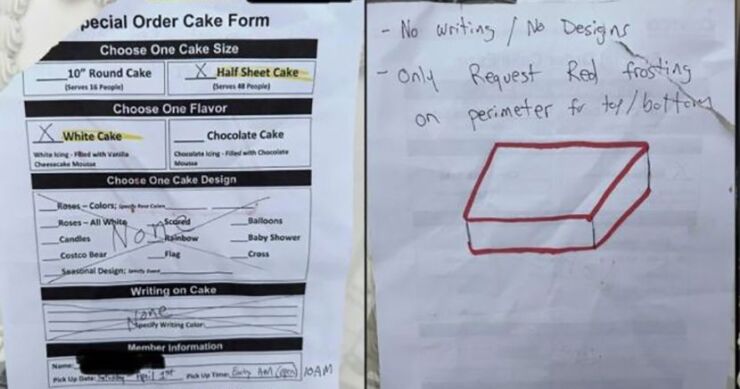 pecial Order Cake Form
Choose One Cake Size
10" Round Cake
(Serves 16 People)
X Half Sheet Cake
(Serves 48 People)
Choose One Flavor
X White Cake
White Icing - Filled with Vanilla
Cheesecake Mousse
Chocolate Cake
Chocolate Icing - Filled with Chocolate
Mousse
Choose One Cake Design
Roses – Colors:
Roses – All White
Scored
Balloons
Candles
Rainbow
Baby Shower
Costco Bear
Flag
Cross
Seasonal Design:
None
Writing on Cake
None
Specify Writing Color:
Member Information
Name:
Pick Up Date: Saturday April 1st
Pick Up Time: Early AM (open) 10AM
- No writing / No Designs
- Only Request Red frosting
on perimeter for top/bottom